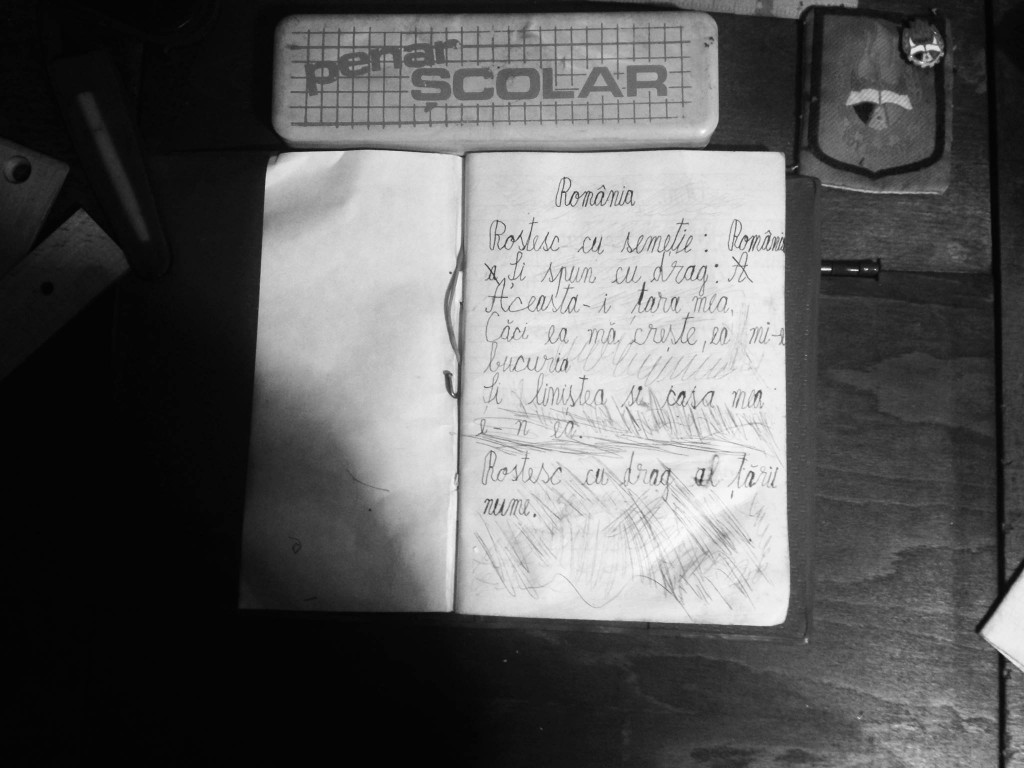 penar
ȘCOLAR
România
Rostesc cu semeție: România
Și spun cu drag: A
Aceasta-i țara mea,
Căci ea mă crește, ea mi-e
bucuria
Și liniștea și casa mea
e-n ea.
Rostesc cu drag al țării
nume.